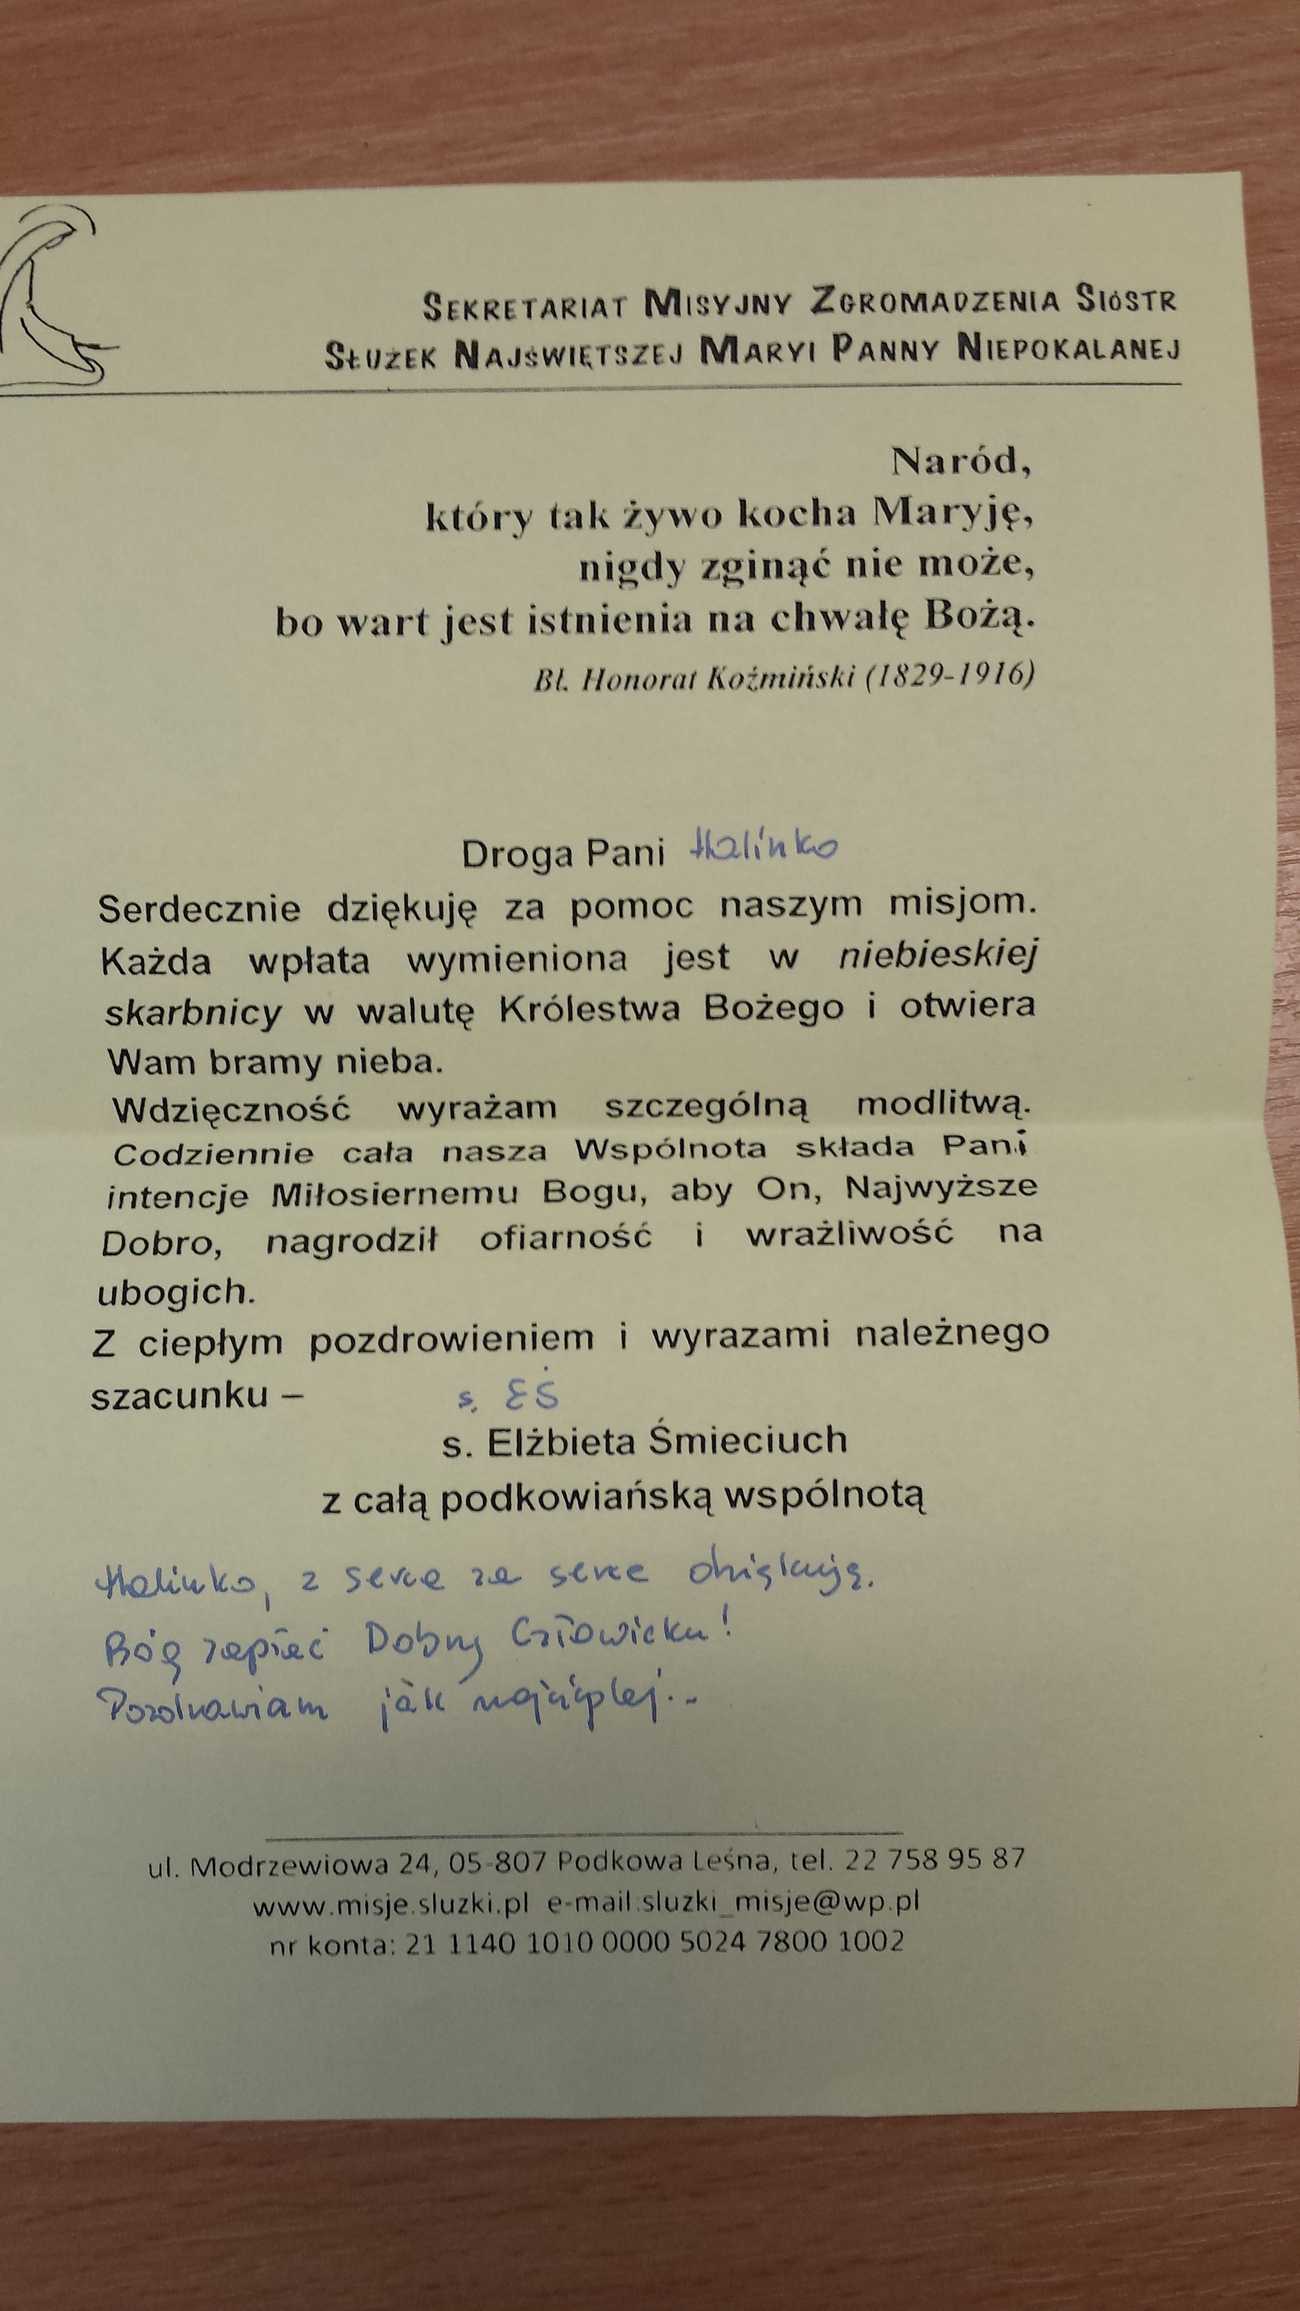 Sekretariat Misyjny Zgromadzenia Sióstr
Służek Najświętszej Maryi Panny Niepokalanej
Naród,
który tak żywo kocha Maryję,
nigdy zginąć nie może,
bo wart jest istnienia na chwałę Bożą.
Bł. Honorat Koźmiński (1829-1916)
Droga Pani Halinko
Serdecznie dziękuję za pomoc naszym misjom.
Każda wpłata wymieniona jest w niebieskiej
skarbnicy w walutę Królestwa Bożego i otwiera
Wam bramy nieba.
Wdzięczność wyrażam szczególną modlitwą.
Codziennie cała nasza Wspólnota składa Pani
intencje Miłosiernemu Bogu, aby On, Najwyższe
Dobro, nagrodził ofiarność i wrażliwość na
ubogich.
Z ciepłym pozdrowieniem i wyrazami należnego
szacunku – s. EŚ
s. Elżbieta Śmieciuch
z całą podkowiańską wspólnotą
Halinko, z serca za serce dziękuję.
Bóg zapłać Dobry Człowieku!
Pozdrawiam jak najcieplej...
ul. Modrzewiowa 24, 05-807 Podkowa Leśna, tel. 22 758 95 87
www.misje.sluzki.pl e-mail:sluzki_misje@wp.pl
nr konta: 21 1140 1010 0000 5024 7800 1002